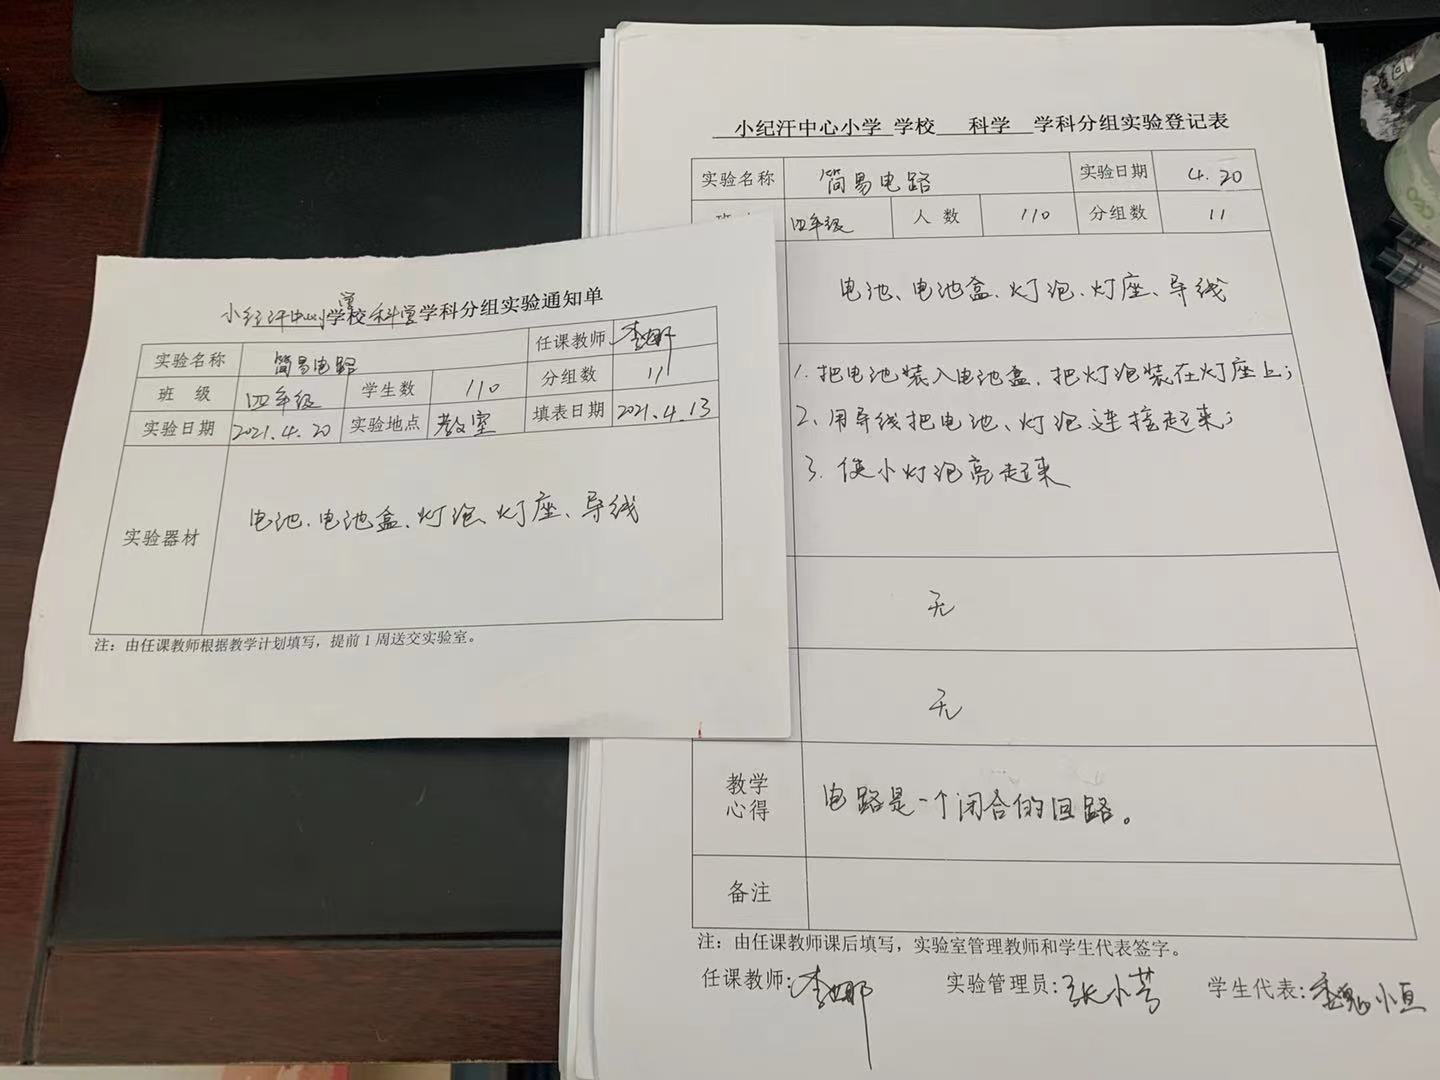 小纪汗中心小学校科学学科分组实验通知单
实验名称 简易电路 任课教师 李娜
班级 四年级 学生数 110 分组数 11
实验日期 2021.4.20 实验地点 教室 填表日期 2021.4.13
实验器材 电池、电池盒、灯泡、灯座、导线
注：由任课教师根据教学计划填写，提前1周送交实验室。
小纪汗中心小学 学校 科学 学科分组实验登记表
实验名称 简易电路 实验日期 4.20
四年级 人数 110 分组数 11
电池、电池盒、灯泡、灯座、导线
1.把电池装入电池盒，把灯泡装在灯座上；
2、用导线把电池、灯泡连接起来；
3.使小灯泡亮起来
无
无
教学
心得 电路是一个闭合的回路。
备注
注：由任课教师课后填写，实验室管理教师和学生代表签字。
任课教师：李娜 实验管理员：张小芳 学生代表：